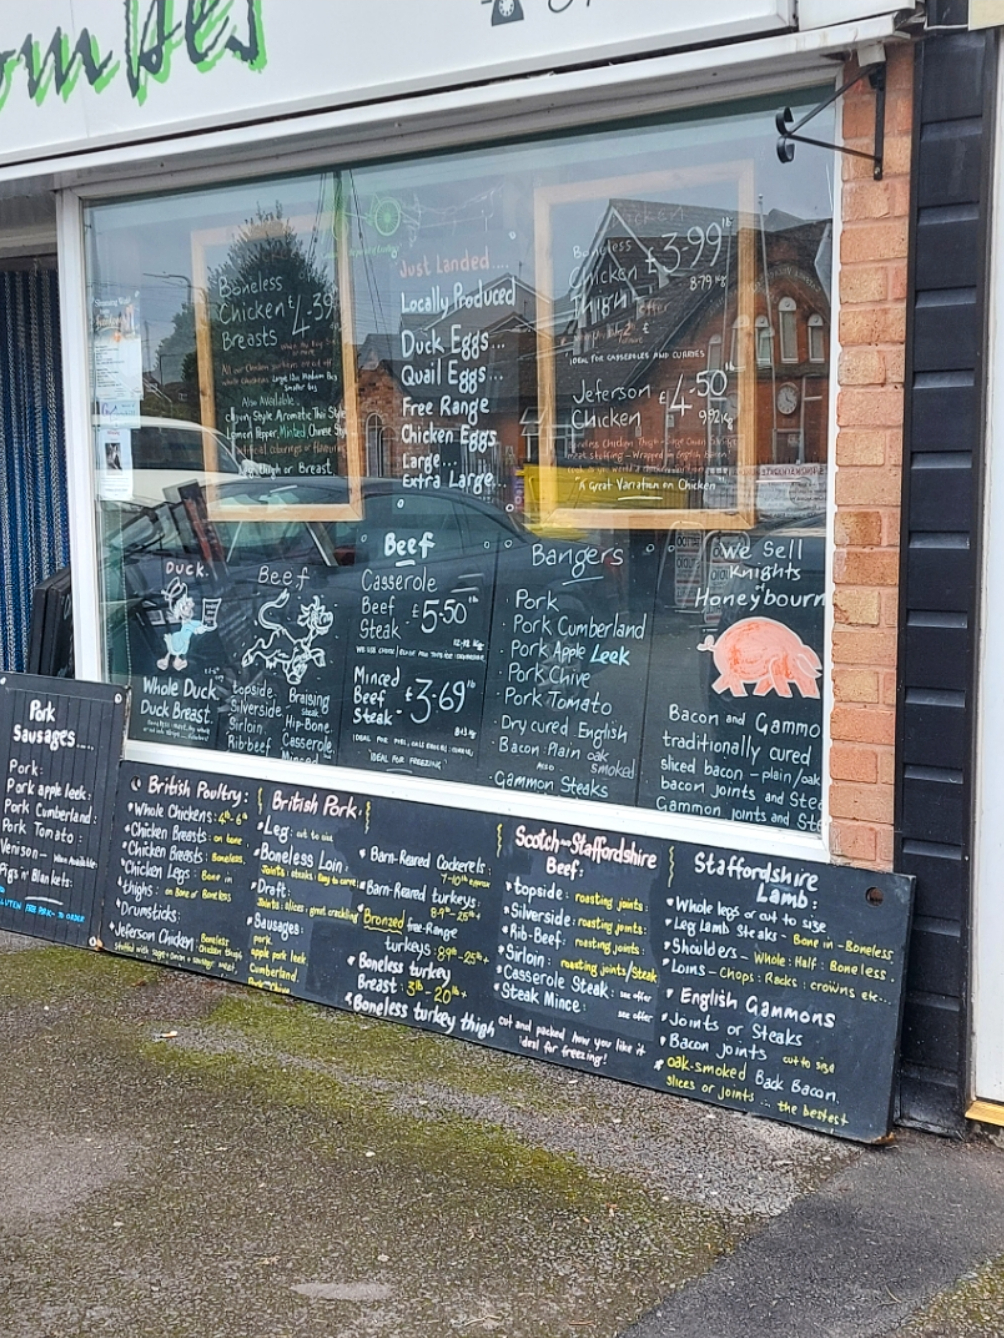 Boneless
Chicken £4.39
Breasts
Also Available...
Style Aromatic Thai Style
Lemon Pepper, Minted, Chinese
thigh or Breast
Just Landed....
Locally Produced
Duck Eggs...
Quail Eggs...
Free Range
Chicken Eggs
Large...
Extra Large...
Chicken
Boneless
Chicken £3.99 lb
Thigh 8.79 kg
IDEAL FOR CASSEROLES AND CURRIES
Jeferson £4.50 lb
Chicken 9.92 kg
"A Great Variation on Chicken"
Duck.
Whole Duck
Duck Breast.
Beef
topside.
Silverside.
Sirloin.
Ribbeef
Braising
Steak
Hip-Bone.
Casserole.
Minced
Beef
Casserole
Beef £5.50 lb
Steak
Minced
Beef £3.69 lb
Steak.
IDEAL FOR FREEZING
Bangers
Pork
· Pork Cumberland
· Pork Apple Leek
· Pork Chive
· Pork Tomato
· Dry cured English
· Bacon Plain oak
ALSO smoked
· Gammon Steaks
We Sell
Knights
of
Honeybourn
Bacon and Gammo
traditionally cured
sliced bacon - plain/oak
bacon joints and Ste
Gammon joints and Ste
Pork
Sausages....
Pork:
Pork apple leek:
Pork Cumberland:
Pork Tomato:
Venison - When Available:
Pigs n' Blankets:
GLUTEN FREE PORK - TO ORDER
British Poultry:
*Whole Chickens: 4lb - 6lb
*Chicken Breasts: on bone
*Chicken Breasts: Boneless.
*Chicken Legs: Bone in
*thighs: on Bone or Boneless
*Drumsticks:
*Jeferson Chicken: Boneless Chicken thigh
British Pork:
*Leg: cut to size
*Boneless Loin:
Joints: steaks: Easy to carve
Sausages:
pork.
apple pork leek
Cumberland.
Pork-Chive
*Barn-Reared Cockerels:
7-10lb approx
*Barn-Reared turkeys:
Bronzed free-Range
turkeys:
*Boneless turkey
Breast: 3lb - 20lb+
*Boneless turkey thigh
Scotch-Staffordshire
Beef:
*topside: roasting joints:
*Silverside: roasting joints:
*Rib-Beef: roasting joints:
*Sirloin: roasting joints/Steak
*Casserole Steak: see offer
*Steak Mince: see offer
cut and packed how you like it
ideal for freezing!
Staffordshire
Lamb:
*Whole legs or cut to size
*Leg Lamb Steaks - Bone in - Boneless
*Shoulders - Whole: Half: Boneless.
*Loins - Chops: Racks: crowns etc...
*English Gammons
*Joints or Steaks
*Bacon joints cut to size
*oak-smoked Back Bacon.
slices or joints ... the bestest